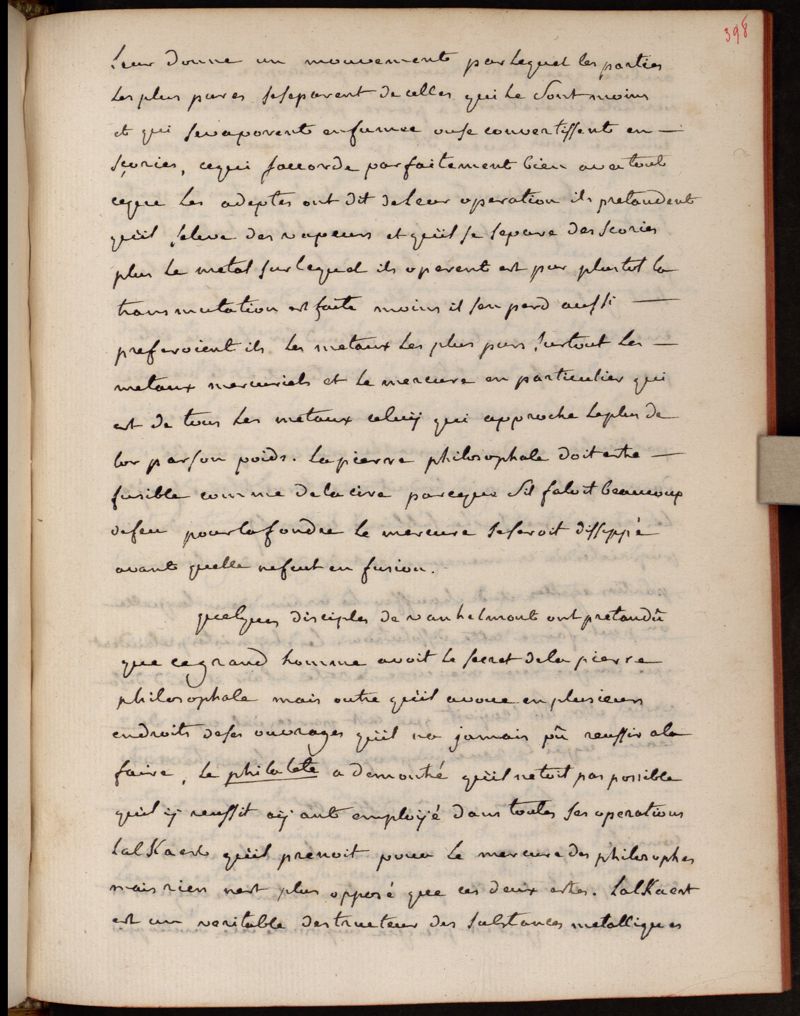 398
Leur donne un mouvement par lequel les parties
les plus pures se separent de celles qui le sont moins
et qui sevaporent enfumée ou se convertissent en —
scories, cequi saccorde parfaitement bien avec tout
ceque les adeptes ont dit de leur operation ils pretendent
qu'il seleve des vapeurs et qu'il se separe des scories
plus le metal sur lequel ils operent est pur plustot la
transmutation est faite moins il sen perd aussi —
preferoient ils les metaux les plus purs, surtout les —
metaux mercuriels et le mercure en particulier qui
est de tous les metaux celuÿ qui approche leplus de
lor par son poids. La pierre philosophale doit estre —
fusible comme de la cire parceque sil faloit beaucoup
defeu pour la fondre le mercure seseroit dissippé
avant quelle nefeut en fusion.
quelques disciples de vanhelmont ont pretandû
que cegrand homme avoit le secret de la pierre
philosophale mais outre qu'il avoue en plusieurs
endroits de ses ouvrages qu'il na jamais pû reussir a la
faire, le philalete a demontré qu'il netoit pas possible
qu'il ÿ reussit aÿant emploÿé dans toutes ses operations
lalKaest qu'il prenoit pour le mercure des philosophes
mais rien nest plus opposé que ces deux estres. LalKaest
est un veritable destructeur des substances metalliques